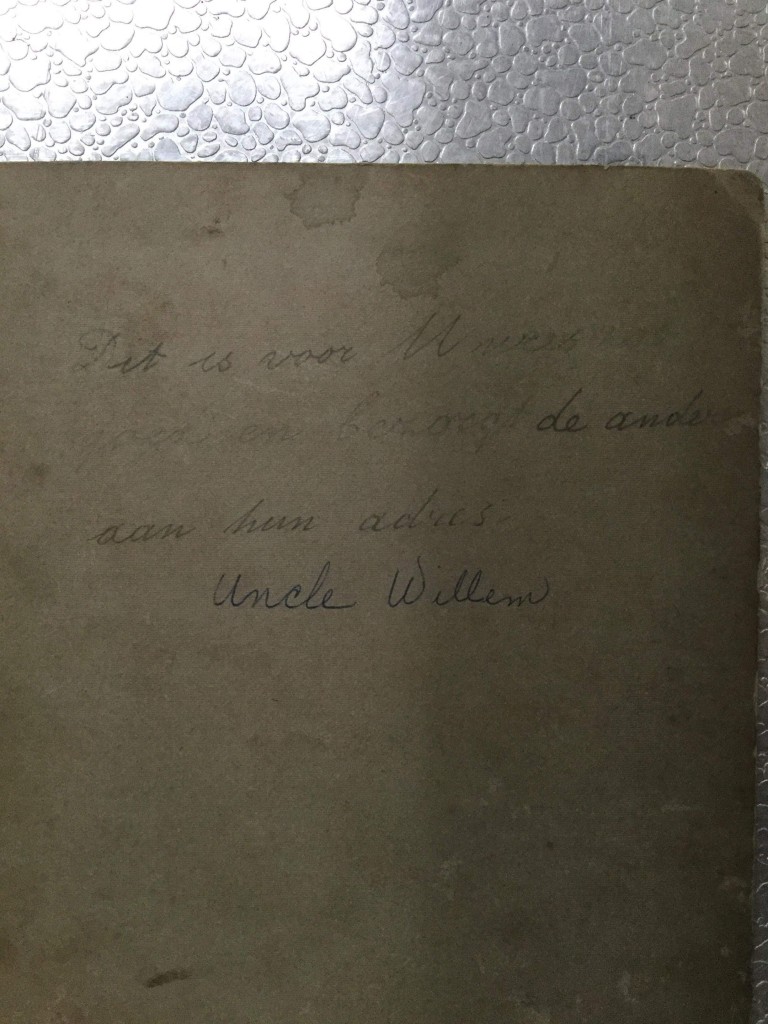 Dit is voor U wees
goed en bezorgt de ander
aan hun adres.
Uncle Willem